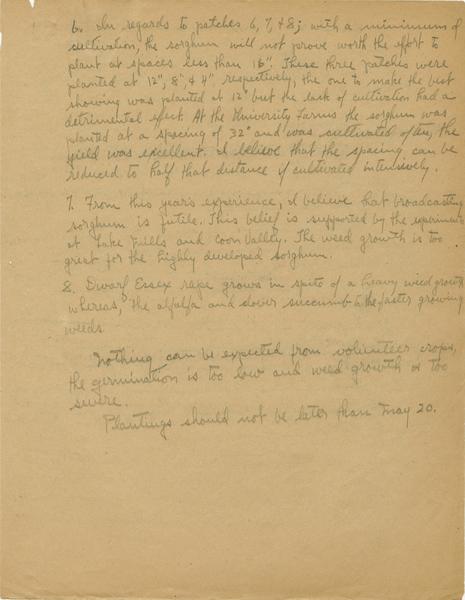 6. In regards to patches 6, 7, & 8; with a minimum of
cultivation, the sorghum will not prove worth the effort to
plant at spaces less than 16". These three patches were
planted at 12", 8", & 4" respectively, the one to make the best
showing was planted at 12" but the lack of cultivation had a
detrimental effect. At the University Farms the sorghum was
planted at a spacing of 32" and was cultivated often, the
yield was excellent. I believe that the spacing can be
reduced to half that distance if cultivated intensively.
7. From this year's experience, I believe that broadcasting
sorghum is futile. This belief is supported by the experiments
at Lake Mills and Coon Valley. The weed growth is too
great for the highly developed sorghum.
8. Dwarf Essex rape grows in spite of a heavy weed growth
whereas, the alfalfa and clover succumb to the faster growing
weeds.
Nothing can be expected from volunteer crops,
the germination is too low and weed growth is too
severe.
Plantings should not be later than May 20.